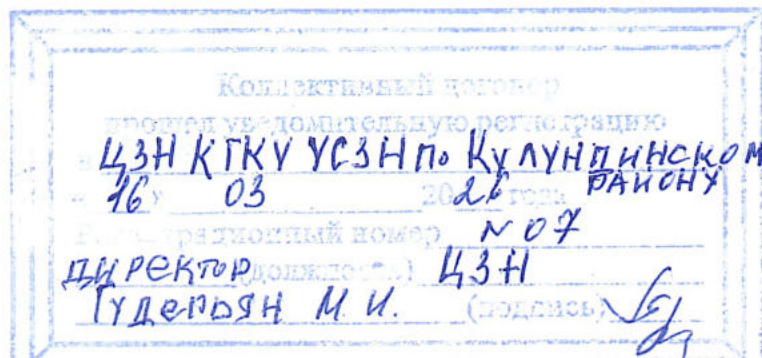 Коллективный договор
прошел уведомительную регистрацию
в ЦЗН КГКУ УСЗН по Кулундинском
району
"16" 03 2026 года
Регистрационный номер №07
директор (должность) ЦЗН
Гудерьян М.И. (подпись)